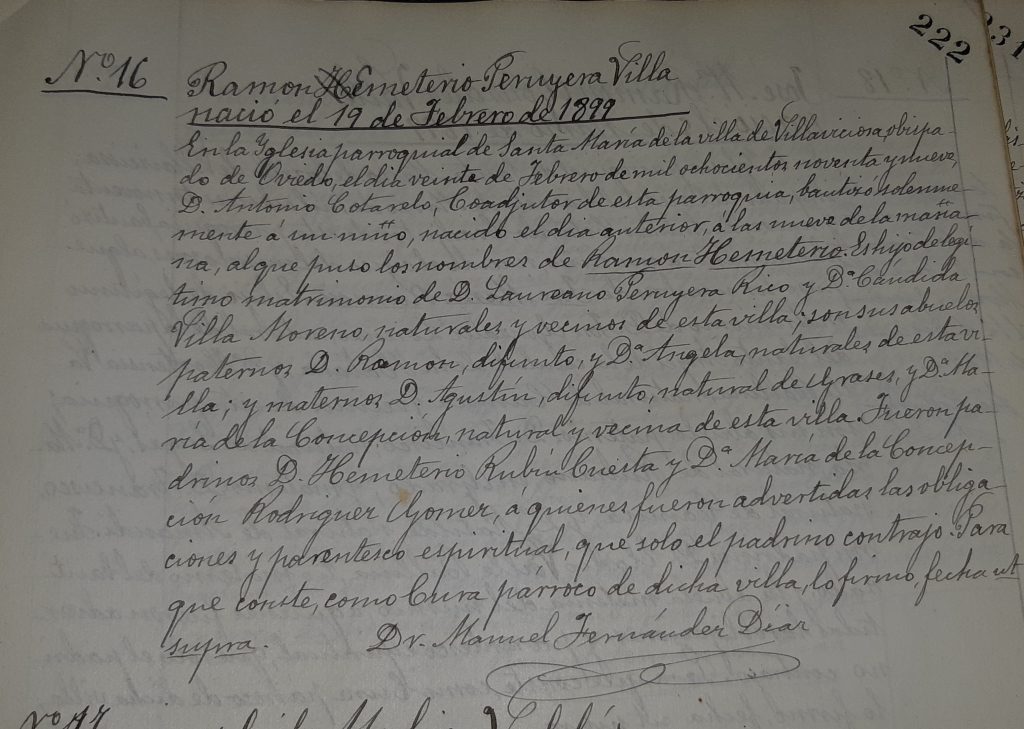 222
231
Nº 16
Ramon Hemeterio Peruyera Villa
nació el 19 de Febrero de 1899
En la Yglesia parroquial de Santa María de la villa de Villaviciosa, obispa-
do de Oviedo, el dia veinte de Febrero de mil ochocientos noventa y nueve,
D. Antonio Cotarelo, Coadjutor de esta parroquia, bautizó solemne-
mente á un niño, nacido el dia anterior, á las nueve de la maña-
na, al que puso los nombres de Ramon Hemeterio. Es hijo de legí-
timo matrimonio de D. Laureano Peruyera Rico y Dª Cándida
Villa Moreno, naturales y vecinos de esta villa; son sus abuelos
paternos D. Ramon, difunto, y Dª Angela, naturales de esta vi-
lla; y maternos D. Agustín, difunto, natural de Grases, y Dª Ma-
ría de la Concepción, natural y vecina de esta villa. Fueron pa-
drinos D. Hemeterio Rubín Cuesta y Dª María de la Concep-
ción Rodriguez Gomez, á quienes fueron advertidas las obliga-
ciones y parentesco espiritual, que solo el padrino contrajo. Para
que conste, como Cura párroco de dicha villa, lo firmo, fecha ut
supra. Dr. Manuel Fernández Díaz
Nº 17